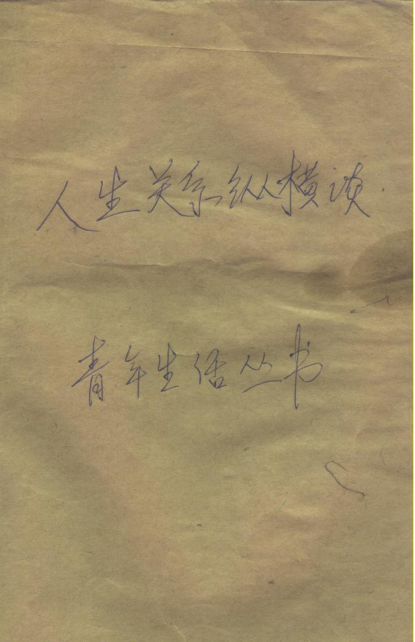 人生关系纵横谈
青年生活丛书